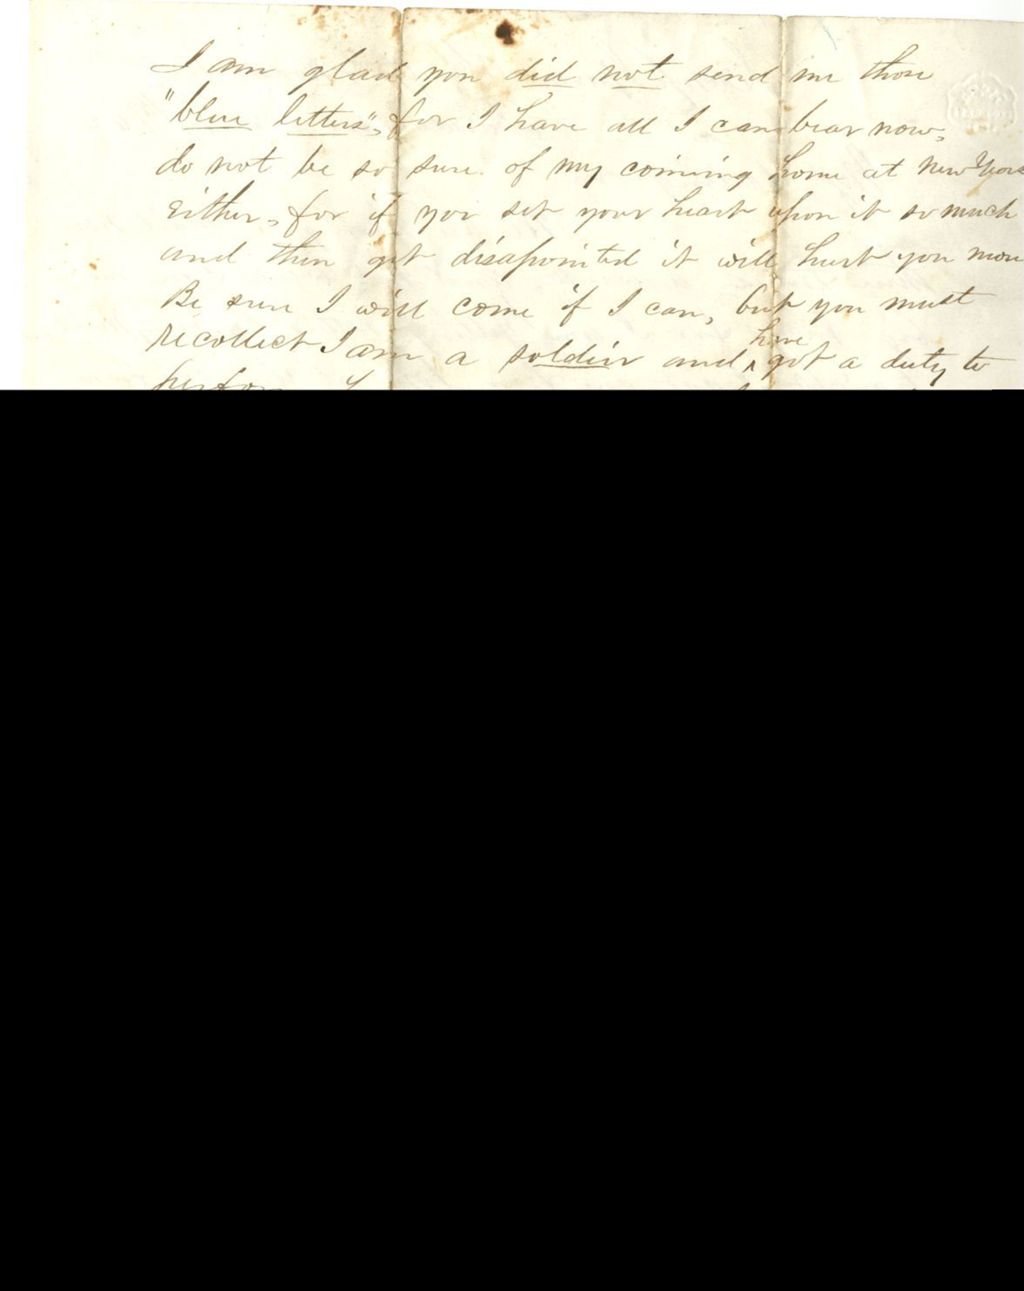 I am glad you did not send me those
"blue letters", for I have all I can bear now,
do not be so sure of my coming home at New Years
either, for if you set your heart upon it so much
and then get disapointed it will hurt you more
Be sure I will come if I can, but you must
recollect I am a soldier and have got a duty to